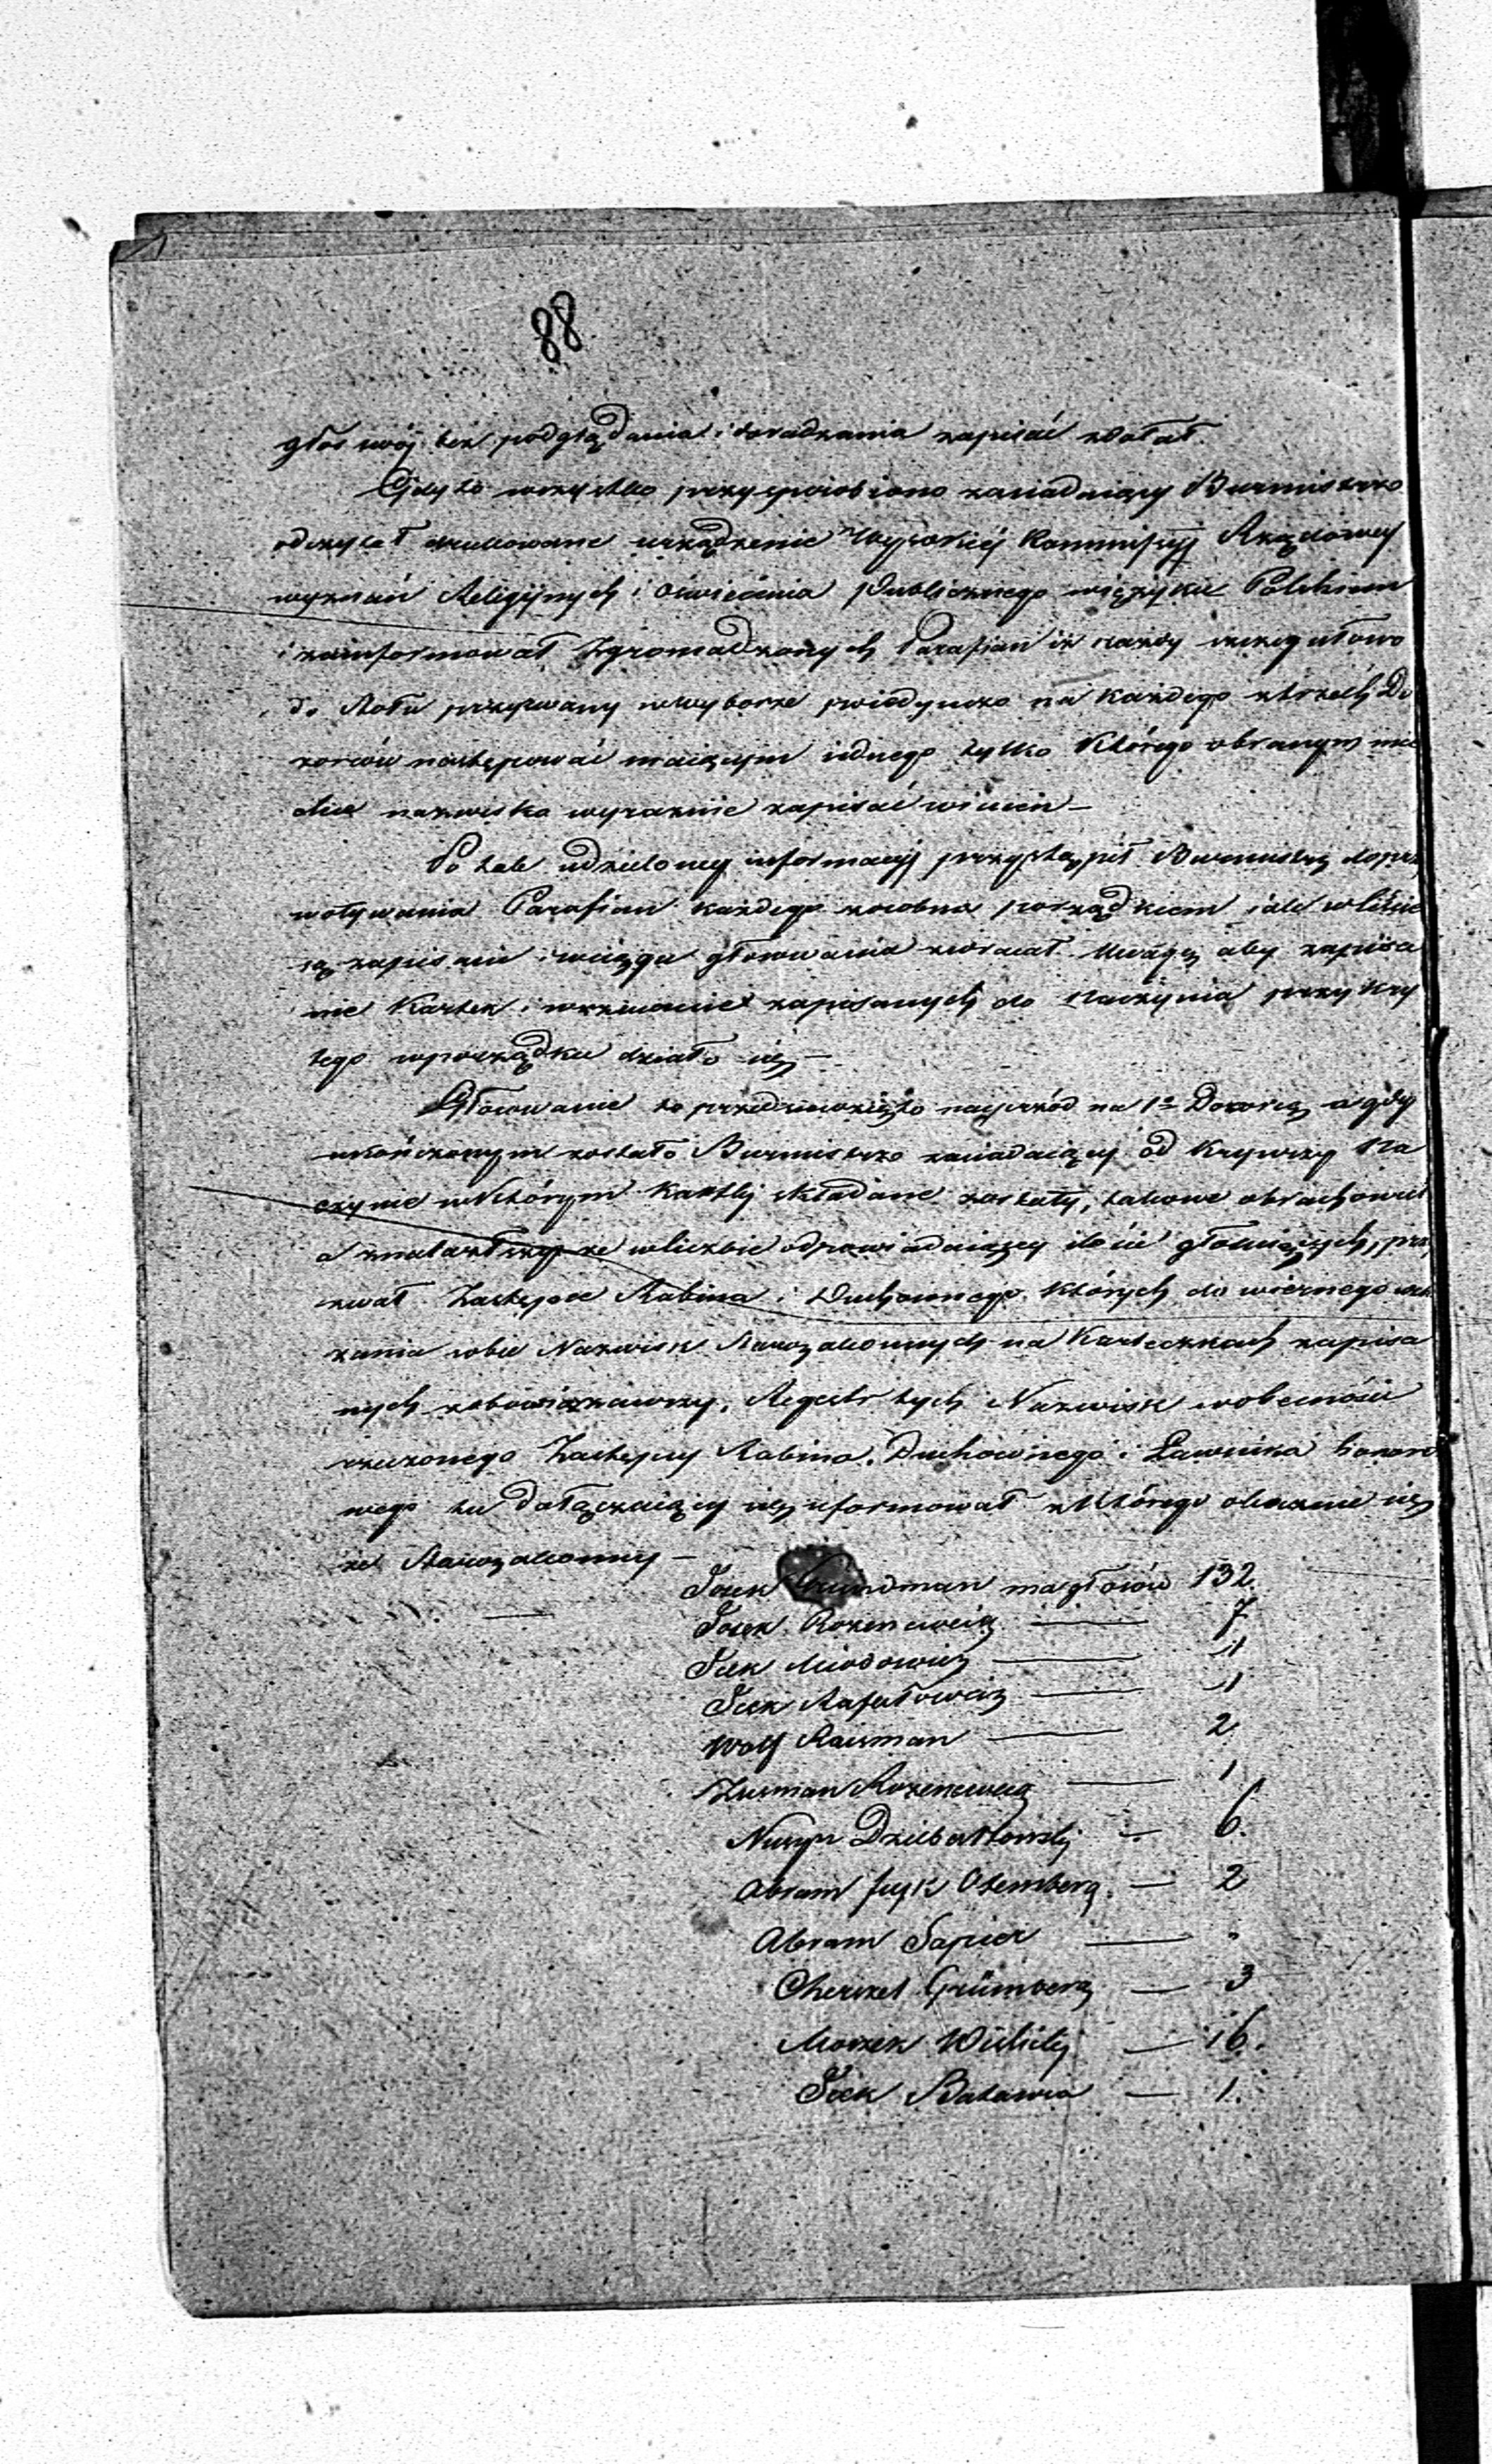 88
głos swój bez podglądania i doradzania zapisać zdołał.
Gdy to wszystko przysposobiono zasiadaiący Burmistrz
odczytał drukowane urządzenie Wysokiéj Kommissyj Rządowey
wyznań Religijnych i Oświecenia Publicznego w ięzyku Polskim
i zainformował Zgromadzonych Parafian iż każdy szczegułowo
do stołu przyzwany w wyborze poiedynczo na każdego z trzech Do
zorców następować maiącym iednego tylko którego obranym mieć
chce nazwisko wyraznie zapisać winien —
Po tak udzieloney informacyj przystąpił Burmistrz do prz
wotywania Parafian każdego z osobna porządkiem iak w liście
są zapisani i w ciągu głosowania zwracał Uwagę aby zapisa
nie Kartek i wrzucanie zapisanych do Naczynia przykry
tego w porządku działo się —
Głosowanie to przedsiewzięto nayprzód na 1º Dozorcę a gdy
ukończonym zostało Burmistrz zasiadaiący odkrywszy Na
czynie w którym Kartki składane zostały, takowe obrachował
a znalazłszy że w liczbie odpowiadaiącey ilości głosuiących, prz
zwał Zastępce Rabina i Duchownego których do wiernego
zania sobie Nazwisk Starozakonnych na Karteczkach zapisa
nych zobowiązawszy, Regestr tych Nazwisk w obecności
rzeczonego Zastępcy Rabina, Duchownego i Ławnika honoro
wego tu dołączaiący się uformował z którego okazuie się
że Starozakonny —
Josek Grundman ma głosów 132.
Josek Rozencweig — 7
Icek Miodowicz — 1
Icek Rafałowicz — 1
Wolf Raisman — 2
Zusman Rozencweig — 1
Nusyn Dziubałtowski — 6.
Abram Icyk Osemberg — 2
Abram Sapier — "
Cherszel Grünberg — 3
Moszek Wiślicki — 16.
Icek Batawia — 1.